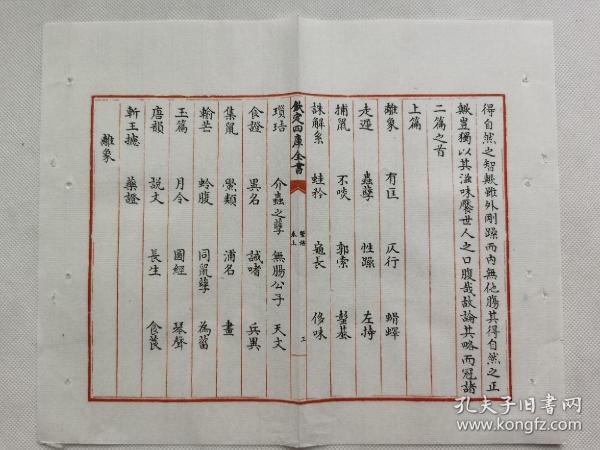 得自然之智歟雖外剛躁而内無他腸其得自然之正
歟豈獨以其滋味饜世人之口腹哉故論其略而冠諸
二篇之首
上篇
離象 有匡 仄行 螖蠌
走遲 蟲孽 性躁 左持
捕鼠 不啖 郭索
誅解系 蛙矜 侈味
欽定四庫全書
蟹譜
卷上
三
瑣琣 介蟲之孽 無腸公子 天文
食證 異名 誡嗜 兵異
集鼠 螖類 浦名 畫
輸芒 蛉腹 同鼠孽 為菑
玉篇 月令 圖經 琴聲
唐韻 說文 長生 食莨
斬王摅 藥證
離象
孔夫子旧书网
www.kongfz.com